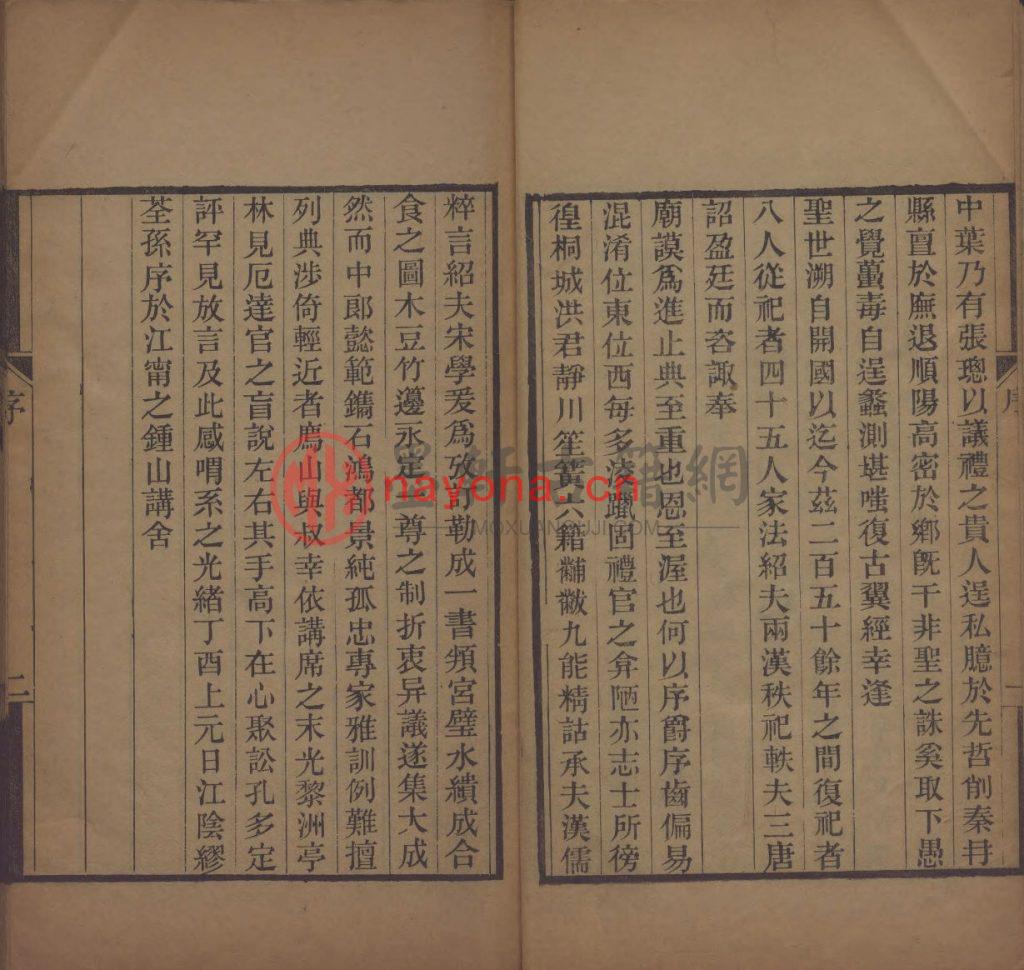 中葉乃有張璁以議禮之貴人逞私臆於先哲削秦冄
縣亶於廡退順陽高密於鄉旣干非聖之誅奚取下愚
之覺蠆毒自逞蠡測堪嗤復古翼經幸逢
聖世溯自開國以迄今茲二百五十餘年之間復祀者
八人從祀者四十五人家法紹夫兩漢秩祀軼夫三唐
詔盈廷而咨諏奉
廟謨爲進止典至重也恩至渥也何以序爵序齒偏易
混淆位東位西每多淩躐固禮官之弇陋亦志士所徬
徨桐城洪君靜川笙簧六籍黼黻九能精詁承夫漢儒
序
一
粹言紹夫宋學爰爲攷訂勒成一書頖宮璧水繢成合
食之圖木豆竹籩永定一尊之制折衷异議遂集大成
然而中郞懿範鐫石鴻都景純孤忠專家雅訓例難擅
列典涉倚輕近者鷹山與叔幸依講席之末光黎洲亭
林見厄達官之盲說左右其手高下在心聚訟孔多定
評罕見放言及此感喟系之光緒丁酉上元日江陰繆
荃孫序於江甯之鍾山講舍
序
二
墨軒古籍網
nayona.cn
MOXUANGUJI.COM